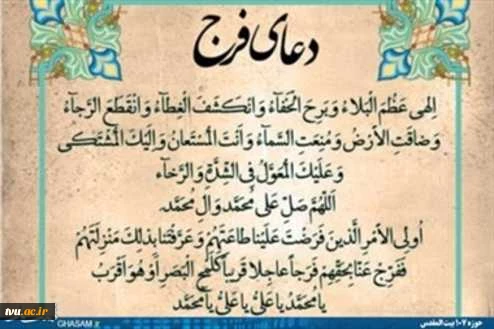 دعای فرج
اِلٰهی عَظُمَ الْبَلاءُ وَبَرِحَ الْخَفاءُ وَانْکَشَفَ الْغِطاءُ وَانْقَطَعَ الرَّجاءُ
وَضاقَتِ الْاَرْضُ وَمُنِعَتِ السَّماءُ وَاَنْتَ الْمُسْتَعانُ وَاِلَیْکَ الْمُشْتَکی
وَعَلَیْکَ الْمُعَوَّلُ فِی الشِّدَّةِ وَالرَّخاءِ
اَللّهُمَّ صَلِّ عَلی مُحَمَّدٍ وَالِ مُحَمَّدٍ
اُولِی الْاَمْرِ الَّذینَ فَرَضْتَ عَلَیْنا طاعَتَهُمْ وَعَرَّفْتَنا بِذلِکَ مَنْزِلَتَهُمْ
فَفَرِّجْ عَنّا بِحَقِّهِمْ فَرَجاً عاجِلاً قَریباً کَلَمْحِ الْبَصَرِ اَوْ هُوَ اَقْرَبُ
یا مُحَمَّدُ یا عَلِیُّ یا عَلِیُّ یا مُحَمَّد
tvu.ac.ir
GHASAM.ir
حوزه ۱۰۷ بیت المقدس